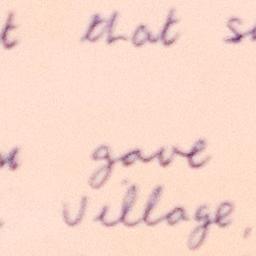 that
gave
Village,